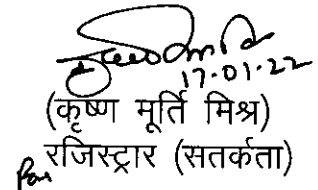 17-01-22
(कृष्ण मूर्ति मिश्र)
रजिस्ट्रार (सतर्कता)